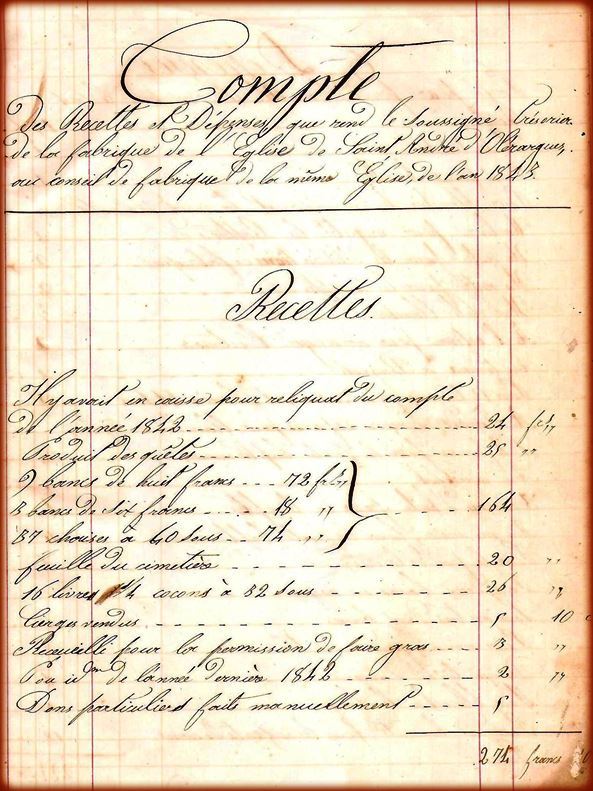 Compte
Des Recettes et Dépenses, que rend le Soussigné Trésorier
de la fabrique de l'Eglise de Saint André d'Olérargues,
au conseil de fabrique de la même Eglise, de l'an 1843.
Recettes.
Il y avait en caisse pour reliquat du compte
de l'année 1842 24 fcs "
Produit des quêtes 25 "
9 bancs de huit francs 72 fcs "
3 bancs de six francs 18 " 164
37 chaises à 40 sous 74 "
feuille du cimetière 20 "
16 livres 1/4 cocons à 32 sous 26 "
Cierges vendus 5 10 c
Recueilli pour la permission de faire gras 3 "
Pou idm de l'année dernière 1842 2 "
Dons particuliers faits manuellement 5
274 francs